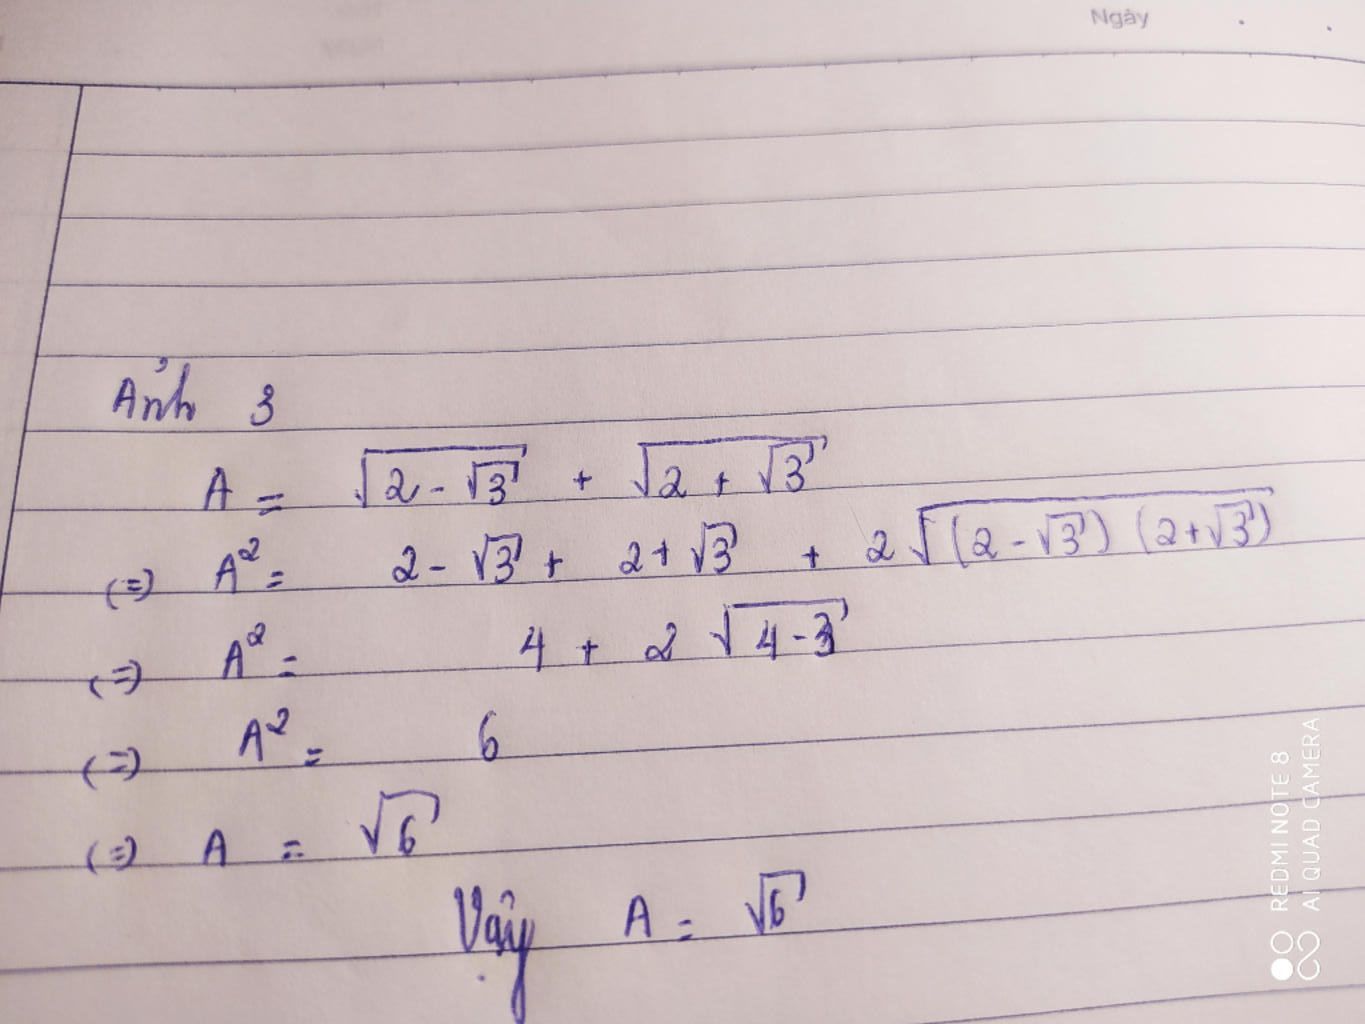 Ngày
Ảnh 3
A = √(2 - √3) + √(2 + √3)
(=) A² = 2 - √3 + 2 + √3 + 2 √((2 - √3) (2 + √3))
(=) A² = 4 + 2 √(4 - 3)
(=) A² = 6
(=) A = √6
Vậy A = √6
REDMI NOTE 8
AI QUAD CAMERA